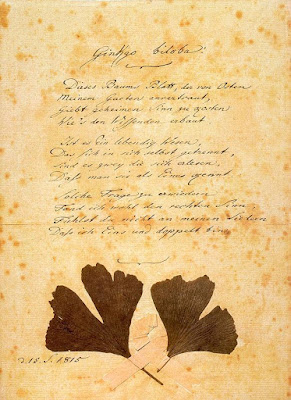 Ginkgo biloba.
Dieses Baums Blatt, der von Osten
Meinem Garten anvertraut,
Giebt geheimen Sinn zu kosten
Wie's den Wissenden erbaut.
Ist es Ein lebendig Wesen,
Das sich in sich selbst getrennt,
Sind es zwey die sich erlesen,
Dass man sie als Eines kennt.
Solche Frage zu erwiedern
Fand ich wohl den rechten Sinn;
Fühlst du nicht an meinen Liedern
Dass ich Eins und doppelt bin?
d. 15. S. 1815